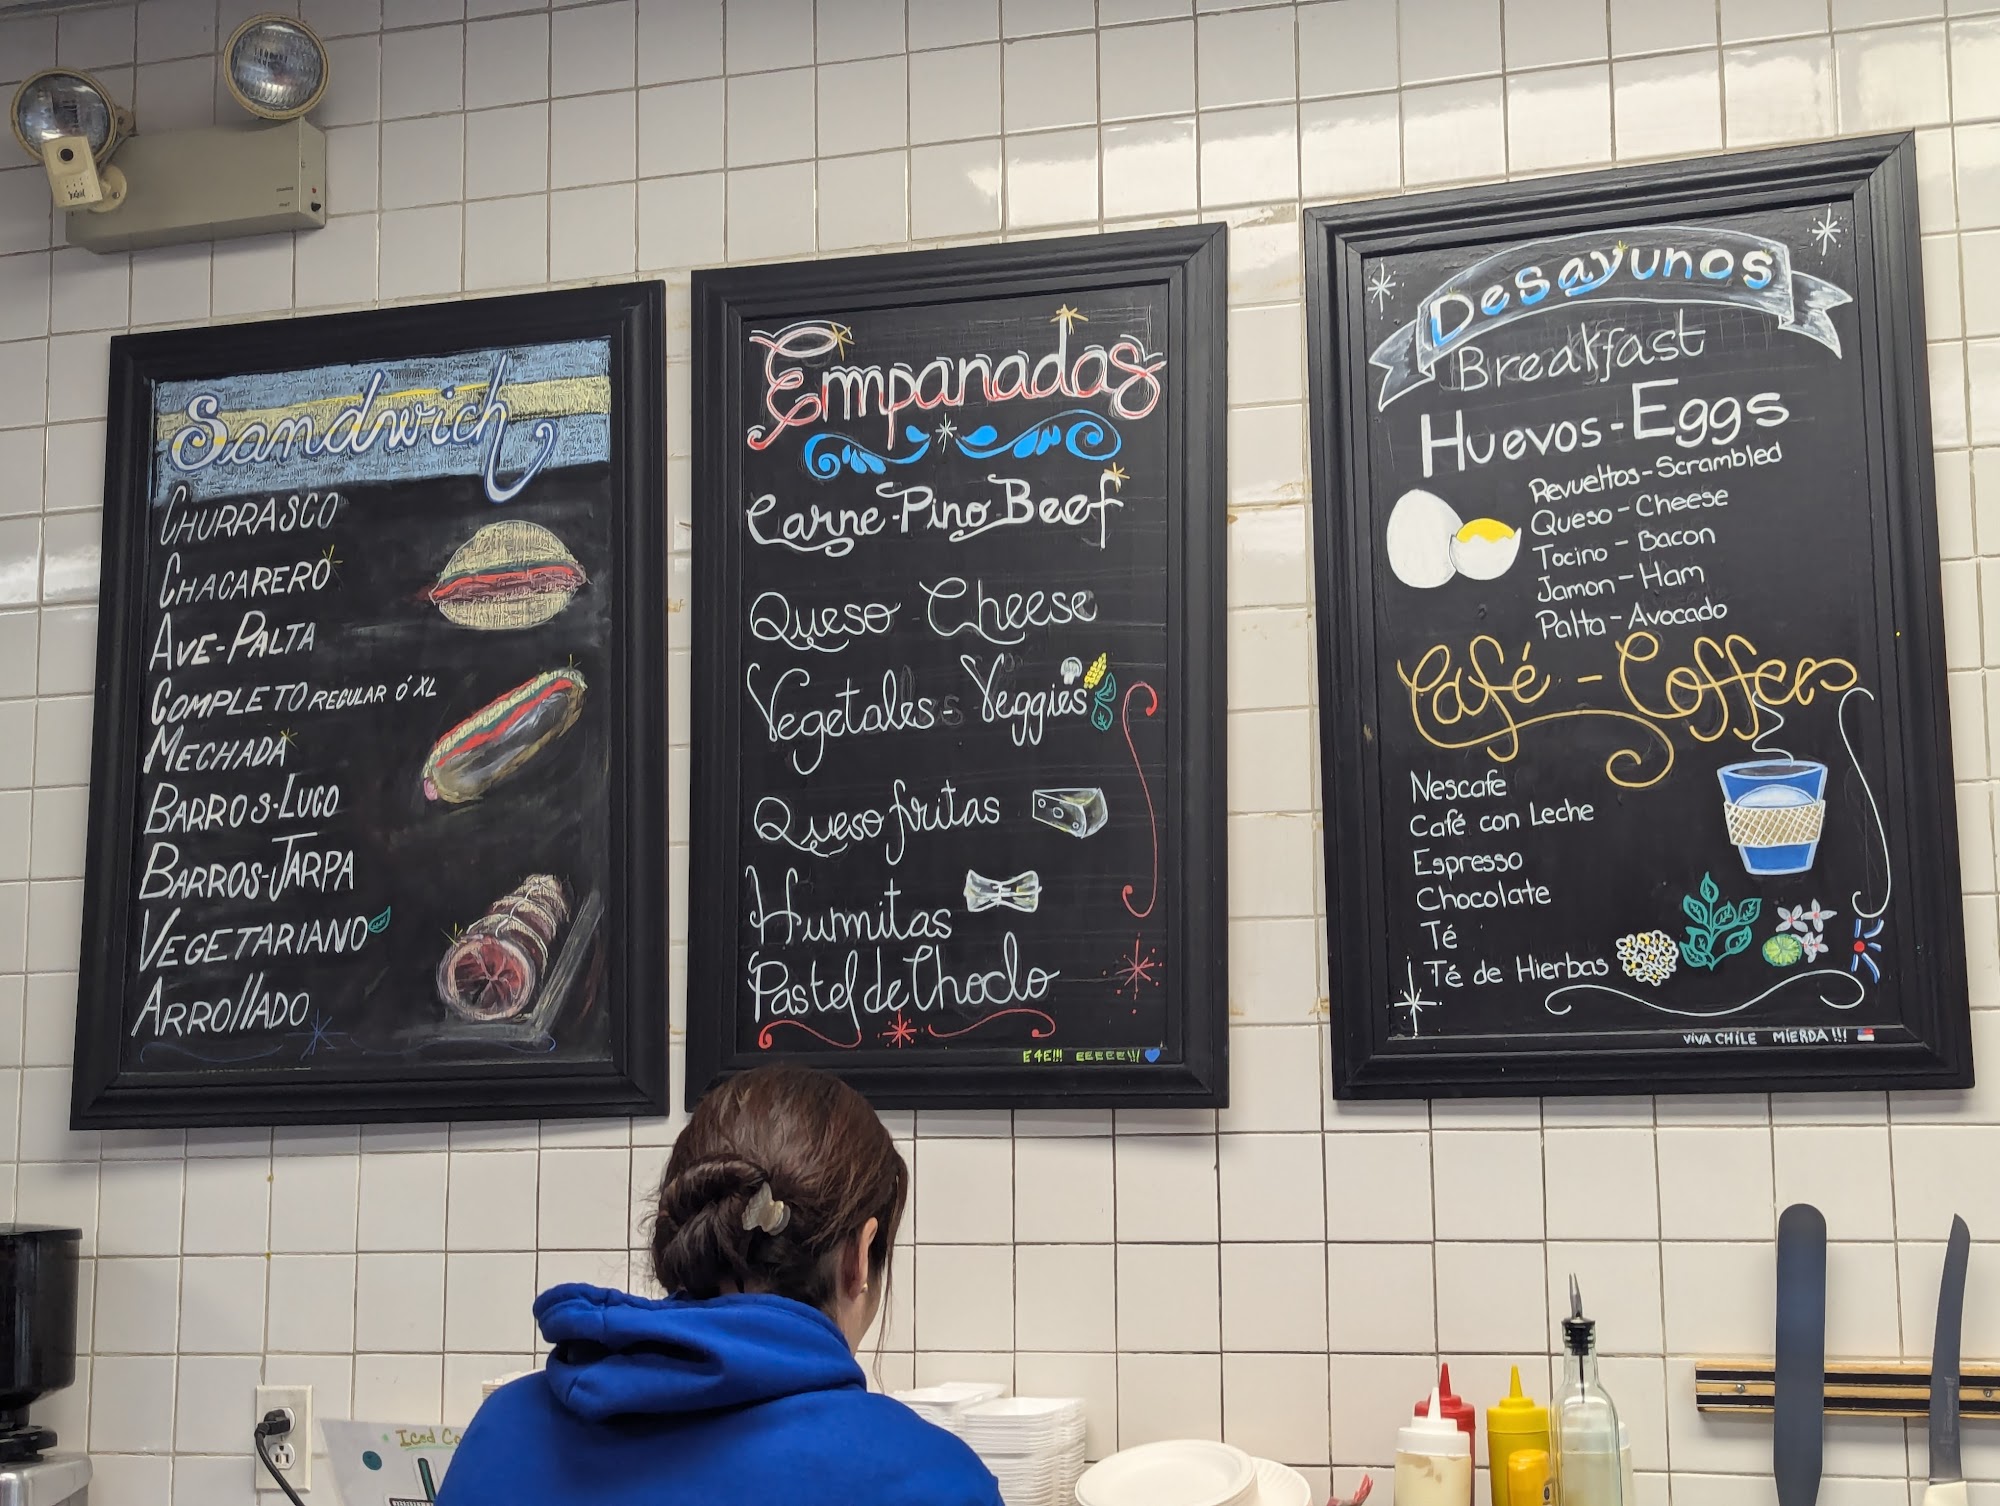 Sandwich
CHURRASCO
CHACARERO
AVE-PALTA
COMPLETO REGULAR Ó XL
MECHADA
BARROS-LUCO
BARROS-JARPA
VEGETARIANO
ARROllADO
Empanadas
Carne-Pino Beef
Queso Cheese
Vegetales - Veggies
Queso fritas
Humitas
Pastel de Choclo
E4E!!! EEEEE!!!
Desayunos
Breakfast
Huevos-Eggs
Revueltos-Scrambled
Queso-Cheese
Tocino-Bacon
Jamon-Ham
Palta-Avocado
Café - Coffee
Nescafe
Café con Leche
Espresso
Chocolate
Té
Té de Hierbas
VIVA CHILE MIERDA!!!
Iced